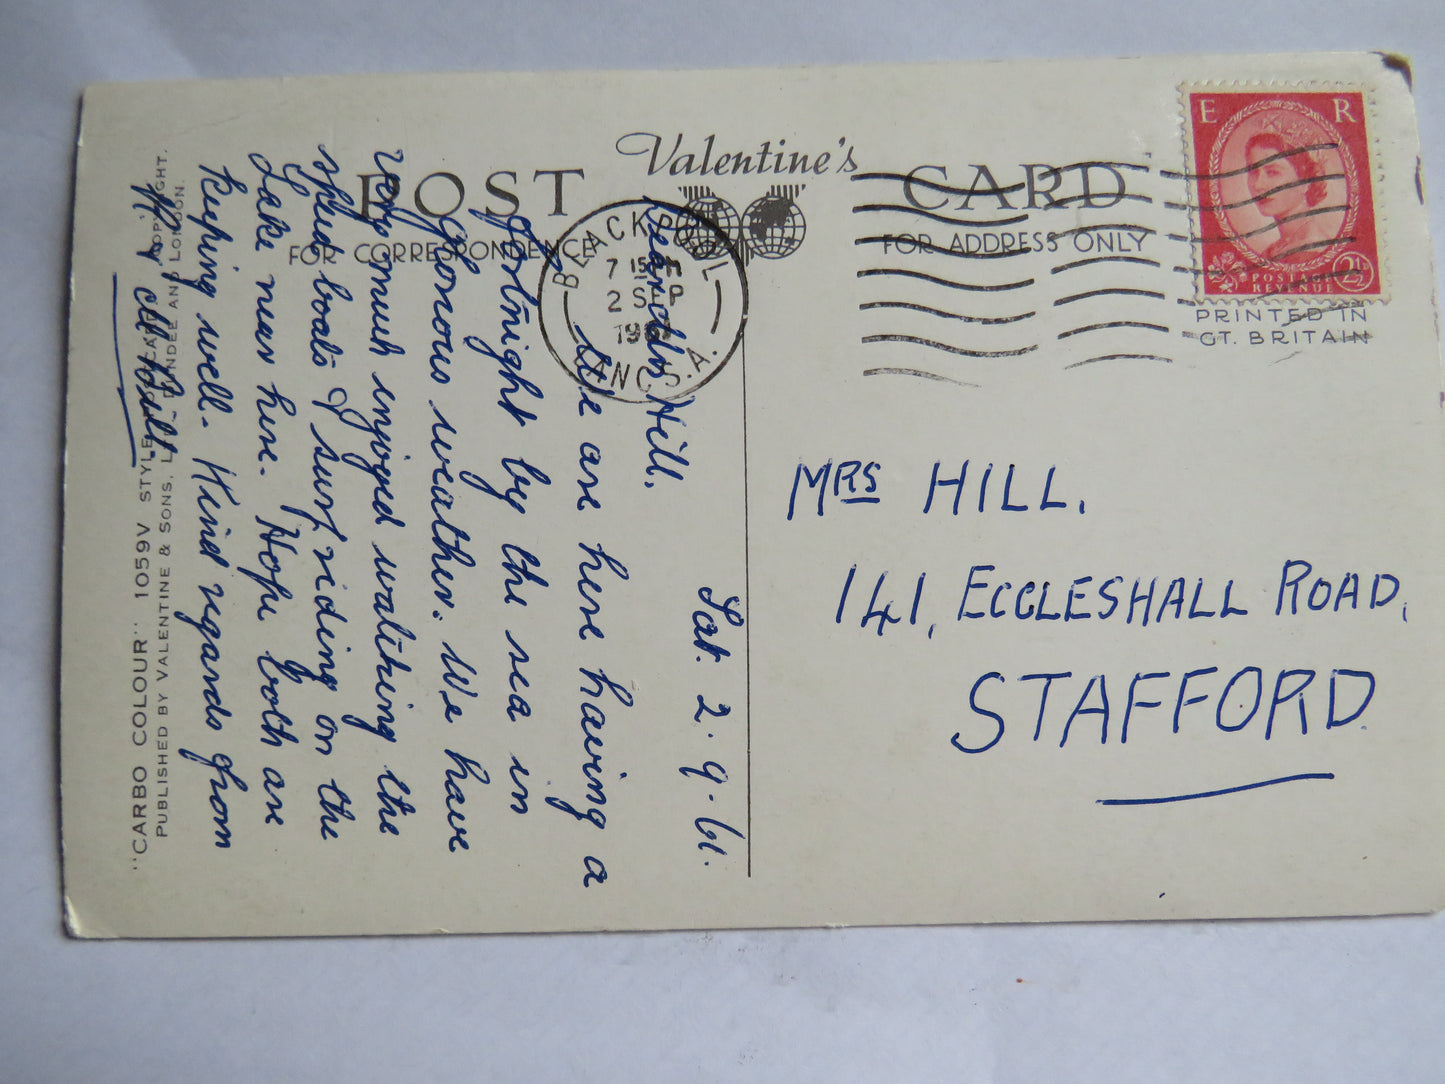 Valentine's
POST CARD
FOR CORRESPONDENCE
FOR ADDRESS ONLY
E R
POSTAGE
REVENUE
2½
PRINTED IN
GT. BRITAIN
BLACKPOOL
LANCS.A.
7 15 PM
2 S
Sat. 2.9.61.
Dear Mrs Hill.
We are here having a
fortnight by the sea in
glorious weather. We have
very much enjoyed watching the
speed boats & surf riding on the
Lake near here. Hope both are
keeping well. Kind regards from
MRS HILL.
141, ECCLESHALL ROAD,
STAFFORD
"CARBO COLOUR" 1059V STYLE CARD COPYRIGHT.
PUBLISHED BY VALENTINE & SONS, LTD., DUNDEE AND LONDON.